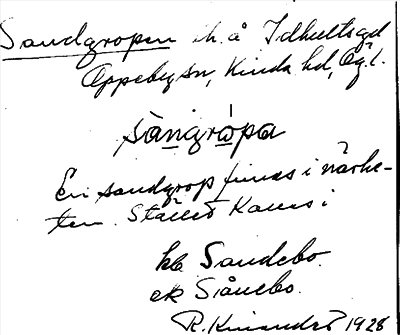 Sandgropen ih. å Idhultsgd
Oppeby sn, Kinda hd, Ög. l.
sàngròpa
En sandgrop finnes i närhe-
ten. Stället Kallas i
kb Sandebo.
ek Siånebo.
R. 1928